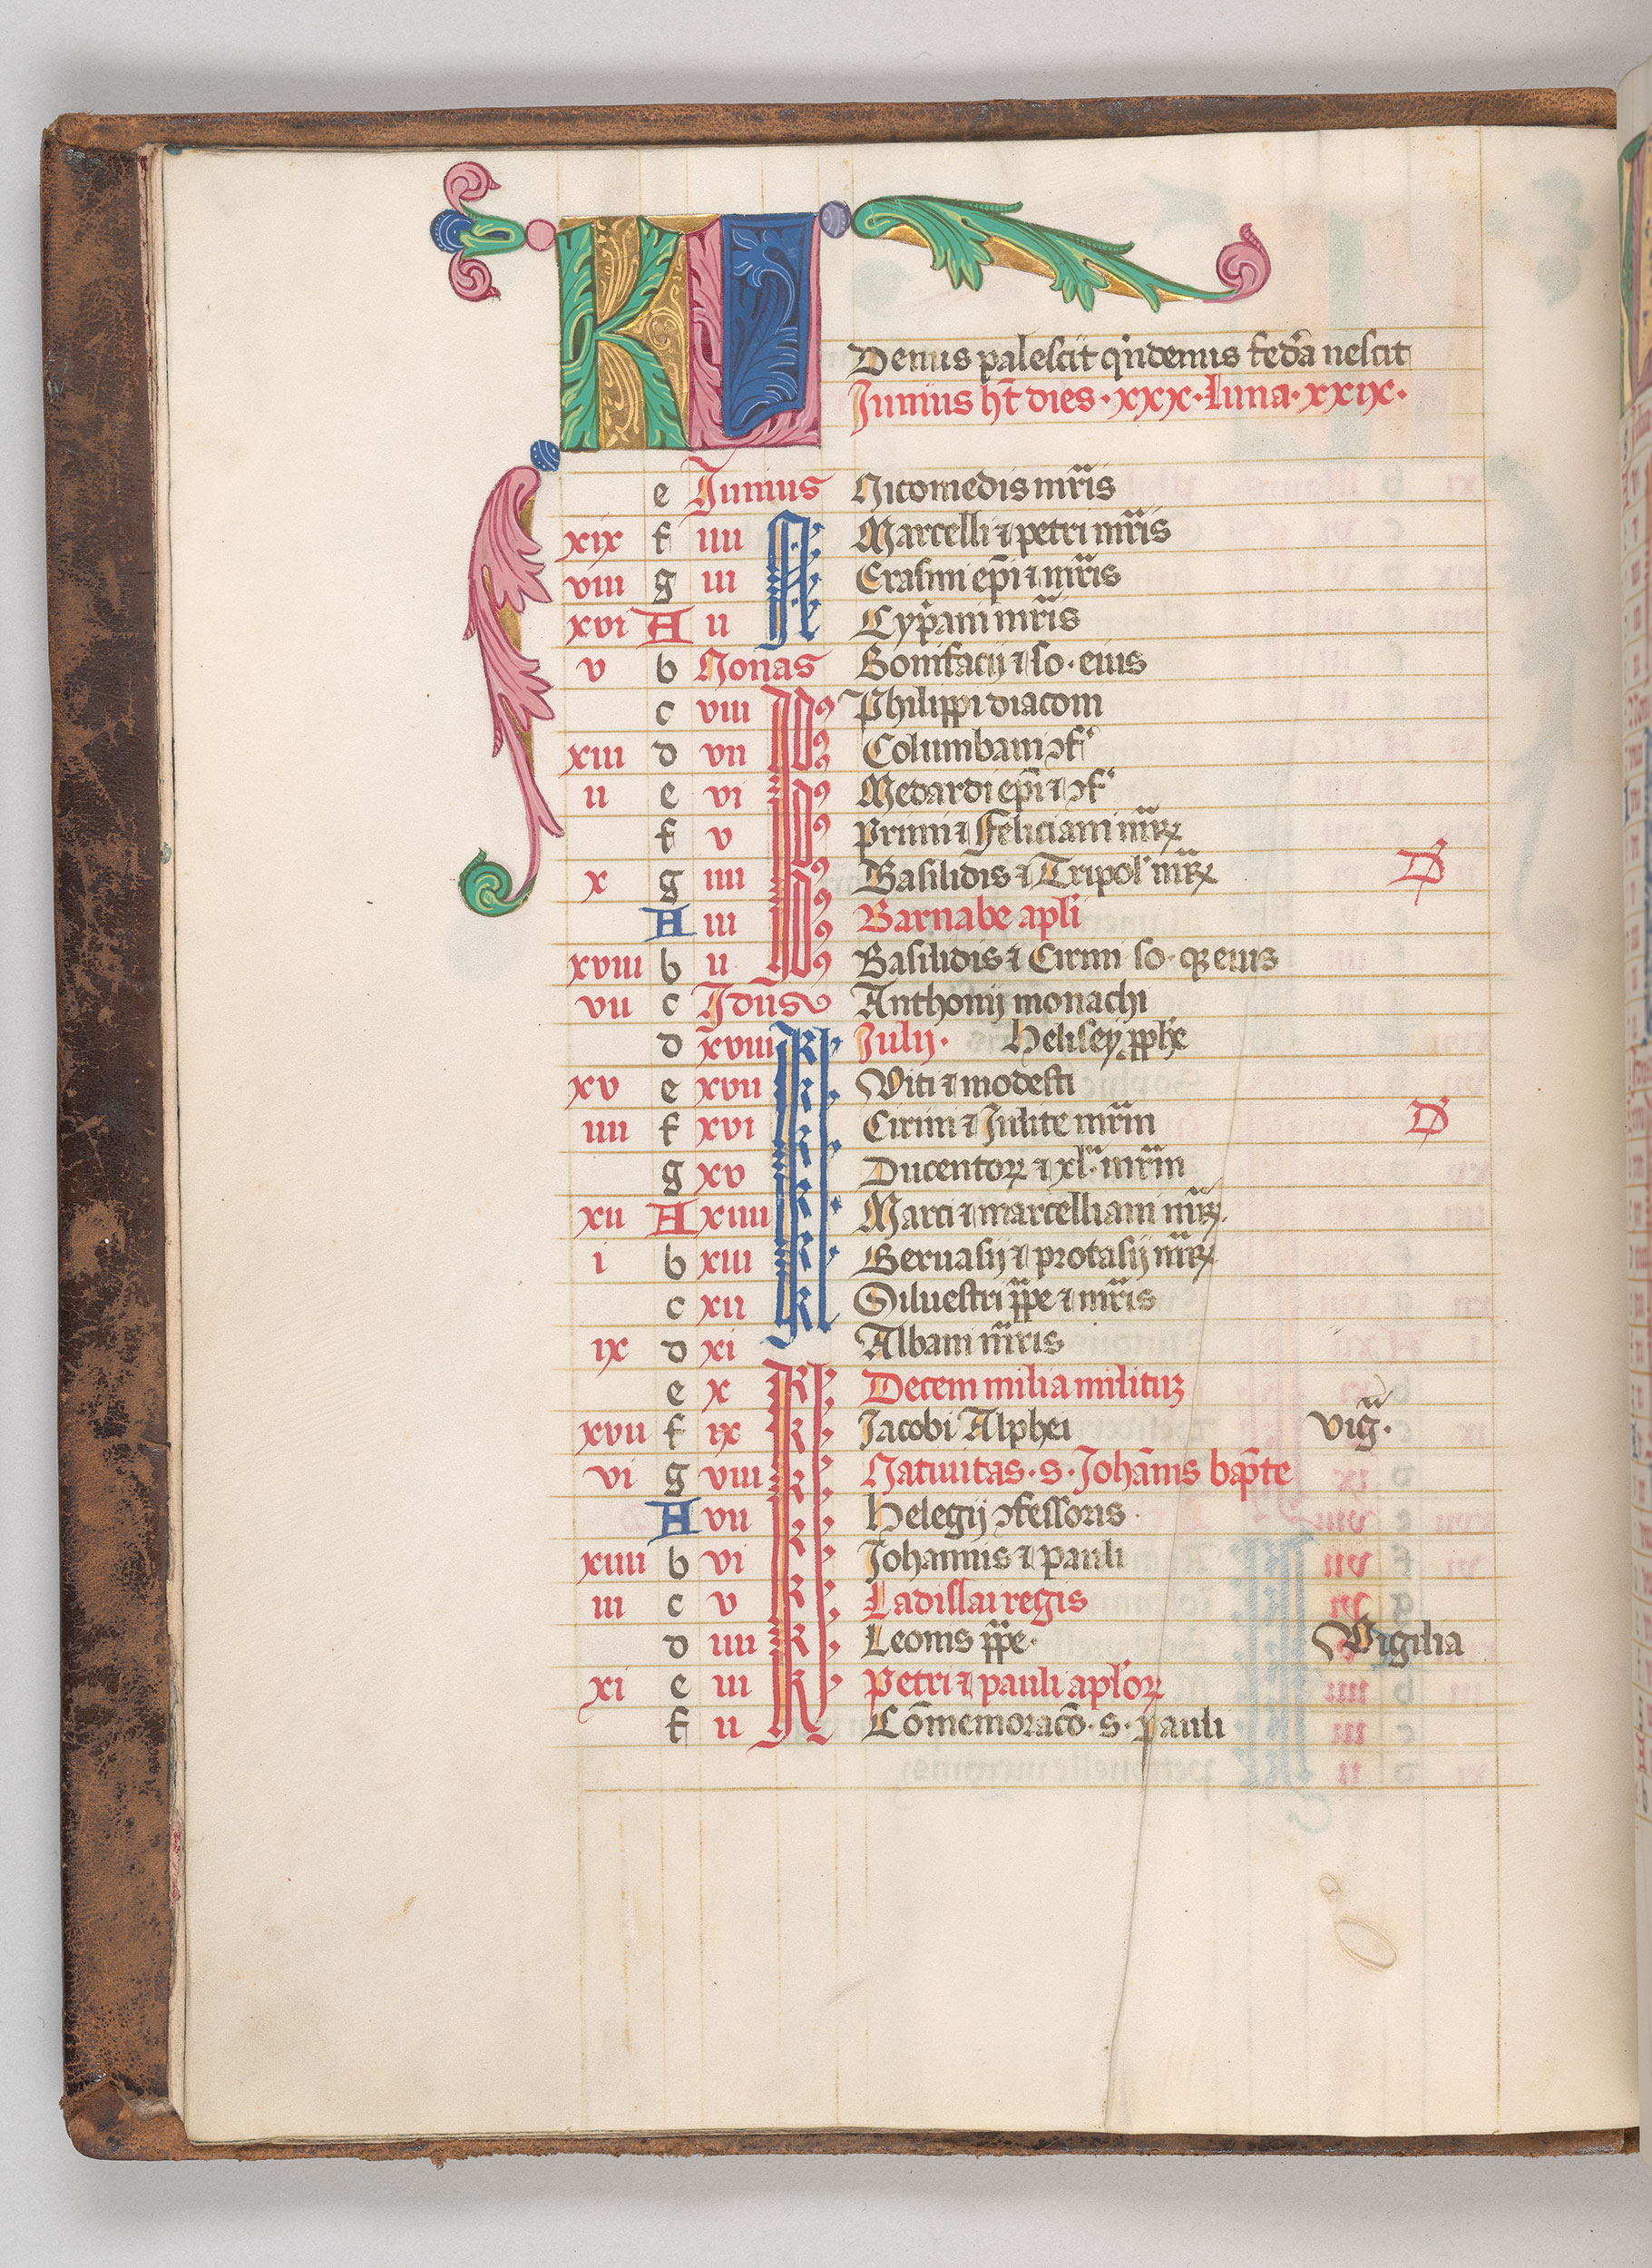 KL
Denus palescit qⁱndenus fed̾a nescit
Junius ht̄ dies · xxx · Luna · xxix ·
e Junius Nicomedis mr̄is
xix f iiii N Marcelli ⁊ petri mr̄is
viii g iii Erasmi ep̄i ⁊ mr̄is
xvi A ii Cyp̄ani mr̄is
v b Nonas Bonifacij ⁊ so · eius
c viii Idꝰ Philippi diaconi
xiii d vii Idꝰ Columbani ɔf̛
ii e vi Idꝰ Medardi ep̄i ⁊ ɔf̛
f v Idꝰ Primi ⁊ Feliciani mr̄ꝝ
x g iiii Idꝰ Basilidis ⁊ Tripol̛ mr̄ꝝ D̛
A iii Idꝰ Barnabe apl̄i
xviii b ii Idꝰ Basilidis ⁊ Cirini so · qꝫ eius
vii c Idus Anthonij monachi
d xviii kl̛ Julij · Helisey ꝓphe
xv e xvii kl̛ Viti ⁊ modesti
iiii f xvi kl̛ Cirini ⁊ Julite mr̄m D̛
g xv kl̛ Ducentoꝝ ⁊ xl · mr̄m
xii A xiiii kl̛ Marci ⁊ marcelliani mr̄ꝝ ·
i b xiii kl̛ Geruasij ⁊ protasij mr̄ꝝ
c xii kl̛ Siluestri p̄pe ⁊ mr̄is
ix d xi Albani mr̄is
e x kl̛ Decem milia militūꝫ
xvii f ix kl̛ Jacobi Alphei viḡ ·
vi g viii kl̛ Natiuitas · s · Johān̄is bap̄te
A vii kl̛ Helegij ɔfessoris ·
xiiii b vi kl̛ Johannis ⁊ pauli
iii c v kl̛ Ladislai regis
d iiii kl̛ Leonis p̄pe · Vigilia
xi e iii kl̛ Petri ⁊ pauli apl̛oꝝ
f ii kl̛ Cōmemoracō · s · pauli